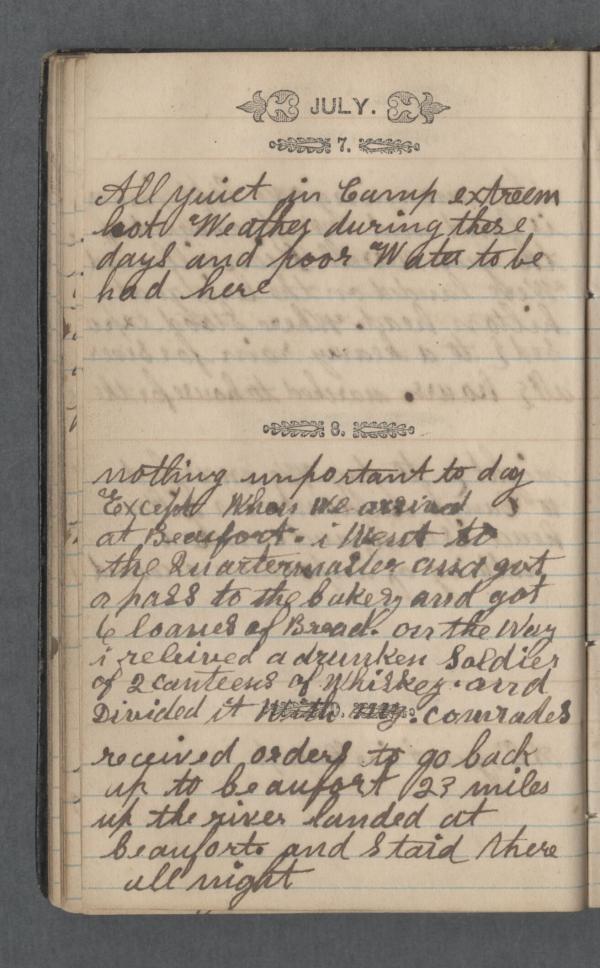 JULY.
7.
All quiet in Camp extreem
hot Weather during these
days and poor Water to be
had here
8.
nothing important to day
Except When we arrived
at Beaufort. i Went to
the Quartermaster and got
a pass to the bakery and got
6 loaves of Bread. on the Way
i relieved a drunken Soldier
of 2 canteens of Whiskey. and
Divided it With my comrades
received orders to go back
up to beaufort 23 miles
up the river landed at
beaufort. and Staid there
all night